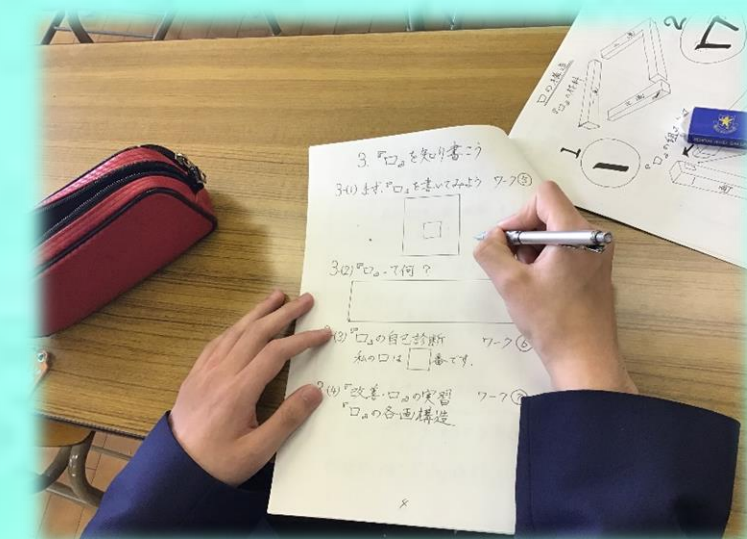 3. 『口』を知り書こう
3-(1) まず、『口』を書いてみよう ワーク⑤
3-(2)『口』って何?
(3)『口』の自己診断 ワーク⑥
私の口は□番です。
(4)『改善・口』の実習 ワーク
『口』の各画構造
口の構造
『口』の材料
1
2